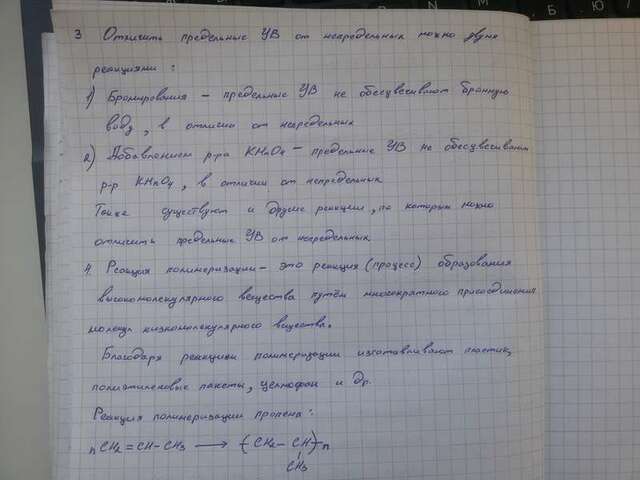 3 Отличить предельные УВ от непредельных можно двумя
реакциями:
1) Бромирования – предельные УВ не обесцвечивают бромную
воду, в отличии от непредельных
2) Добавлением р-ра KMnO4 – предельные УВ не обесцвечивают
р-р KMnO4, в отличии от непредельных
Также существуют и другие реакции, по которым можно
отличить предельные УВ от непредельных
4. Реакция полимеризации – это реакция (процесс) образования
высокомолекулярного вещества путём многократного присоединения
молекул низкомолекулярного вещества.
Благодаря реакции полимеризации изготавливают пластик,
полиэтиленовые пакеты, целлофан и др.
Реакция полимеризации пропена:
nCH2=CH-CH3 → (-CH2-CH-)n
CH3
Б
Ю